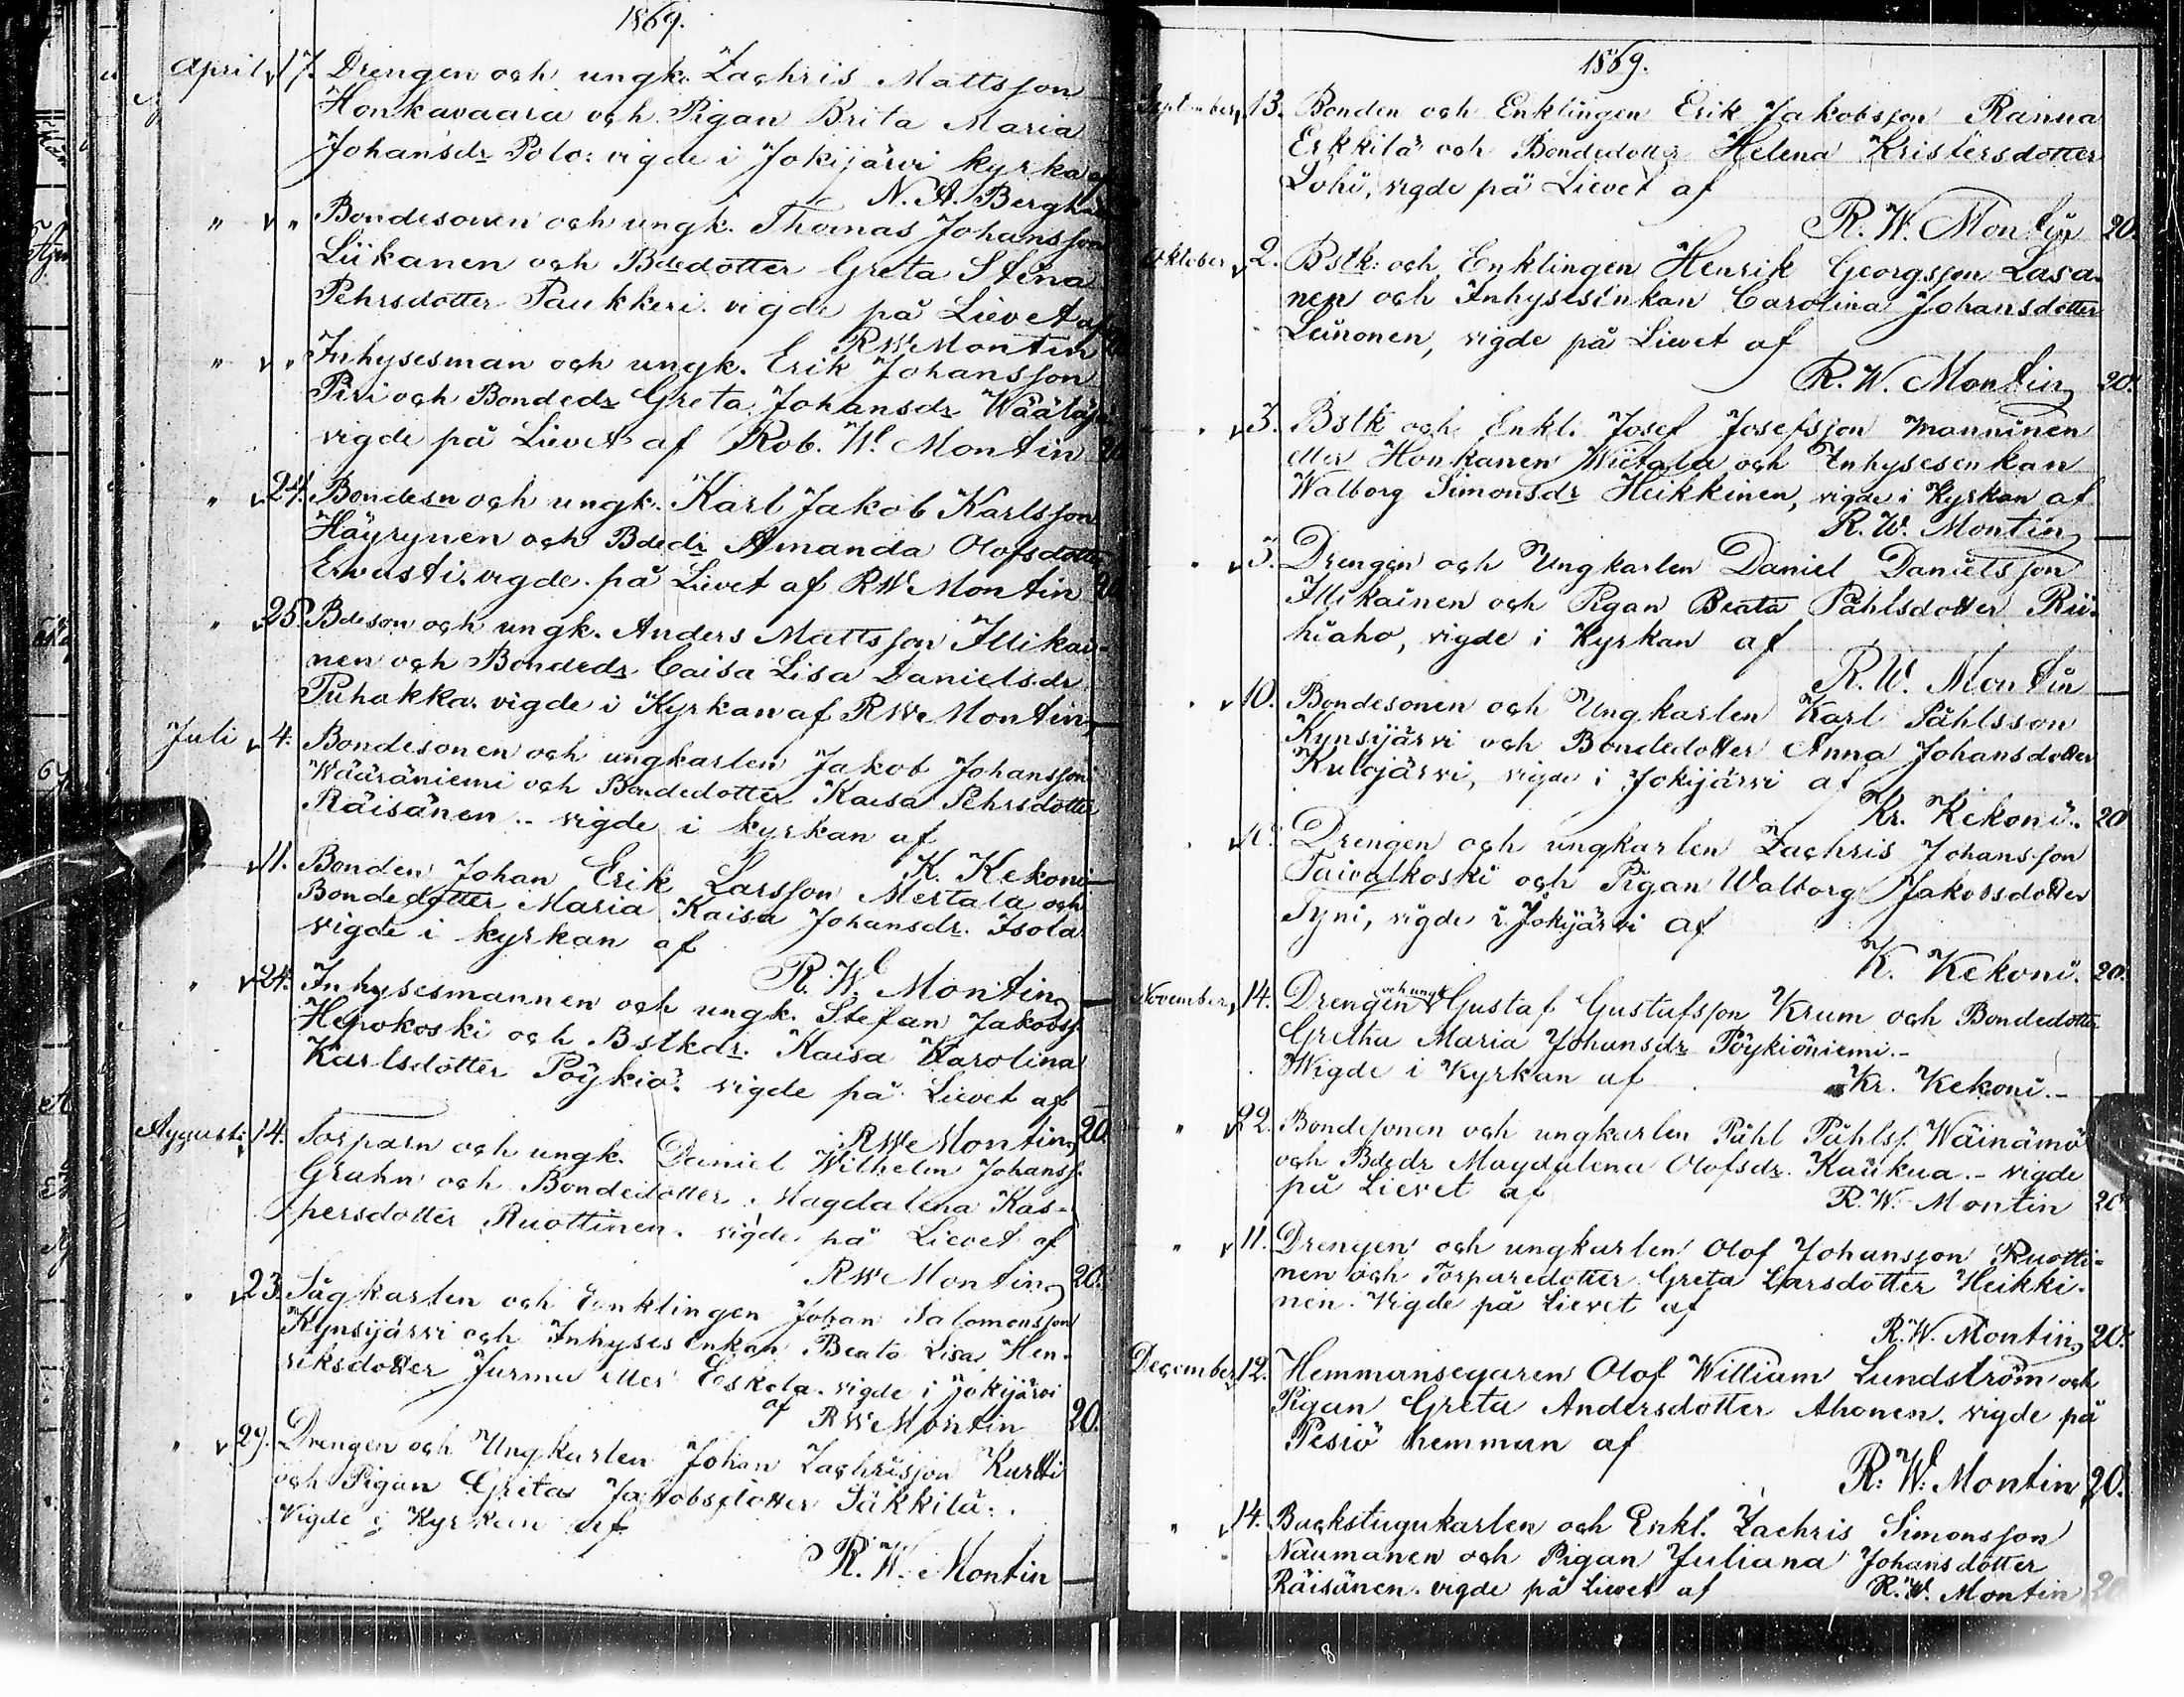 1869.
April 17. Drengen och ungk. Zachris Mattsson
Honkavaara och Pigan Brita Maria
Johansdr Polo: vigde i Jokijärvi kyrka af
N. A. Bergh
" " Bondesonen och ungk. Thomas Johansson
Liikanen och Bdedotter Greta Stina
Pehrsdotter Paukkeri. vigde på Lievet af
RWMontin
" " Inhysesman och ungk. Erik Johansson
Piri och Bondedr Greta Johansdr
vigde på Lievet af Rob. W. Montin 20
" 24. Bondesn och ungk. Karl Jakob Karlsson
Häyrynen och Bdedr Amanda Olofsdotter
Ervasti. vigde på Lievet af RWMontin 20
" 25. Bdeson och ungk. Anders Mattsson Illikai-
nen och Bondedr Caisa Lisa Danielsdr
Puhakka. vigde i Kyrkan af RWMontin
Juli 4. Bondesonen och ungkarlen Jakob Johansson
Wääräniemi och Bondedotter Kaisa Pehrsdotter
Räisänen .- vigde i kyrkan af
K. Kekoni
11. Bonden Johan Erik Larsson Mertala och
Bondedotter Maria Kaisa Johansdr. Isola
vigde i kyrkan af
R. W. Montin
" 24. Inhysesmannen och ungk. Stefan Jakobss.
Hepokoski och Bstkdr. Kaisa Karolina
Karlsdotter Pöykiö. vigde på Lievet af
RWMontin 20.
Augusti 14. Torparn och ungk. Daniel Wilhelm Johanss.
Grahn och Bondedotter Magdalena Kas-
persdotter Ruottinen. vigde på Lievet af
RWMontin 20.
" 23. Sågkarlen och Enklingen Johan Salomonsson
Kynsijärvi och Inhyses enkan Beata Lisa Hen-
riksdotter Jurmu eller Eskola. vigde i Jokijärvi
af RWMontin 20.
" 29. Drengen och Ungkarlen Johan Zachrisson Kurtti
och Pigan Greta Jakobsdotter Säkkilä.
Vigde i Kyrkan af
R. W. Montin
1869.
September 13. Bonden och Enklingen Erik Jakobsson Ranua
Erkkilä och Bondedotter Helena Kristersdotter
Lohi, vigde på Lievet af
R. W. Montin 20.
Oktober 2. Bstk: och Enklingen Henrik Georgsson Lasa-
nen och Inhysesenkan Carolina Johansdotter
Leinonen, vigde på Lievet af
R. W. Montin 20.
" 3. Bstk och Enkl. Josef Josefsson Manninen
eller Honkanen Wiitala och Inhysesenkan
Walborg Simonsdr Heikkinen, vigde i Kyrkan af
R. W. Montin
" 3. Drengen och Ungkarlen Daniel Danielsson
Illikainen och Pigan Beata Påhlsdotter Rii-
hiaho, vigde i Kyrkan af
R. W. Montin
" 10. Bondesonen och Ungkarlen Karl Påhlsson
Kynsijärvi och Bondedotter Anna Johansdotter
Kulojärvi, vigde i Jokijärvi af
Kr. Kekoni. 20
" 10. Drengen och ungkarlen Zachris Johansson
Taivalkoski och Pigan Walborg Jakobsdotter
Tyni, vigde i Jokijärvi af
K. Kekoni. 20.
November 14. Drengen och ungk Gustaf Gustafsson Krum och Bondedotter
Gretha Maria Johansdr Pöykiöniemi.-
Wigde i Kyrkan af Kr. Kekoni.-
" 22. Bondesonen och ungkarlen Påhl Påhlss. Wäinämö
och Bdedr Magdalena Olofsdr. Kaukua.- vigde
på Lievet af R. W. Montin 20
" 11. Drengen och ungkarlen Olof Johansson Ruotti-
nen och Torparedotter Greta Larsdotter Heikki-
nen. Vigde på Lievet af
R. W. Montin 20.
December 12. Hemmansegaren Olof William Lundström och
Pigan Greta Andersdotter Ahonen. vigde på
Pesiö hemman af
R. W. Montin 20.
" 14. Backstugukarlen och Enkl. Zachris Simonsson
Naumanen och Pigan Juliana Johansdotter
Räisänen. vigde på Lievet af R. W. Montin 20